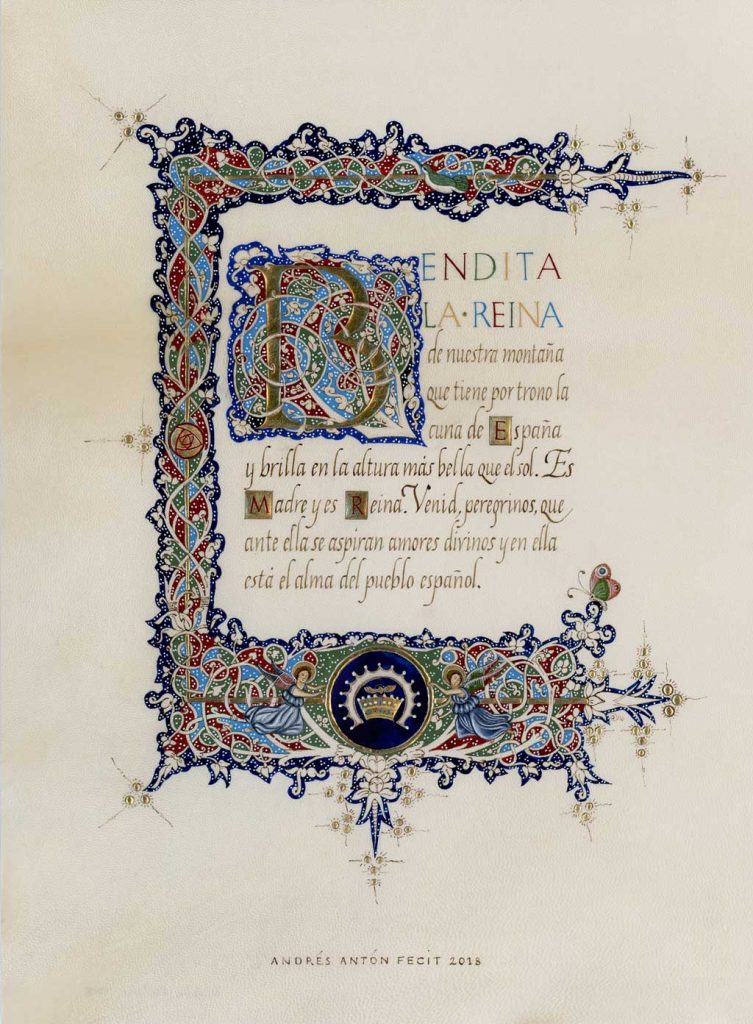 BENDITA
LA·REINA
de nuestra montaña
que tiene por trono la
cuna de España
y brilla en la altura más bella que el sol. Es
Madre y es Reina. Venid, peregrinos, que
ante ella se aspiran amores divinos y en ella
está el alma del pueblo español.
ANDRÉS ANTÓN FECIT 2018